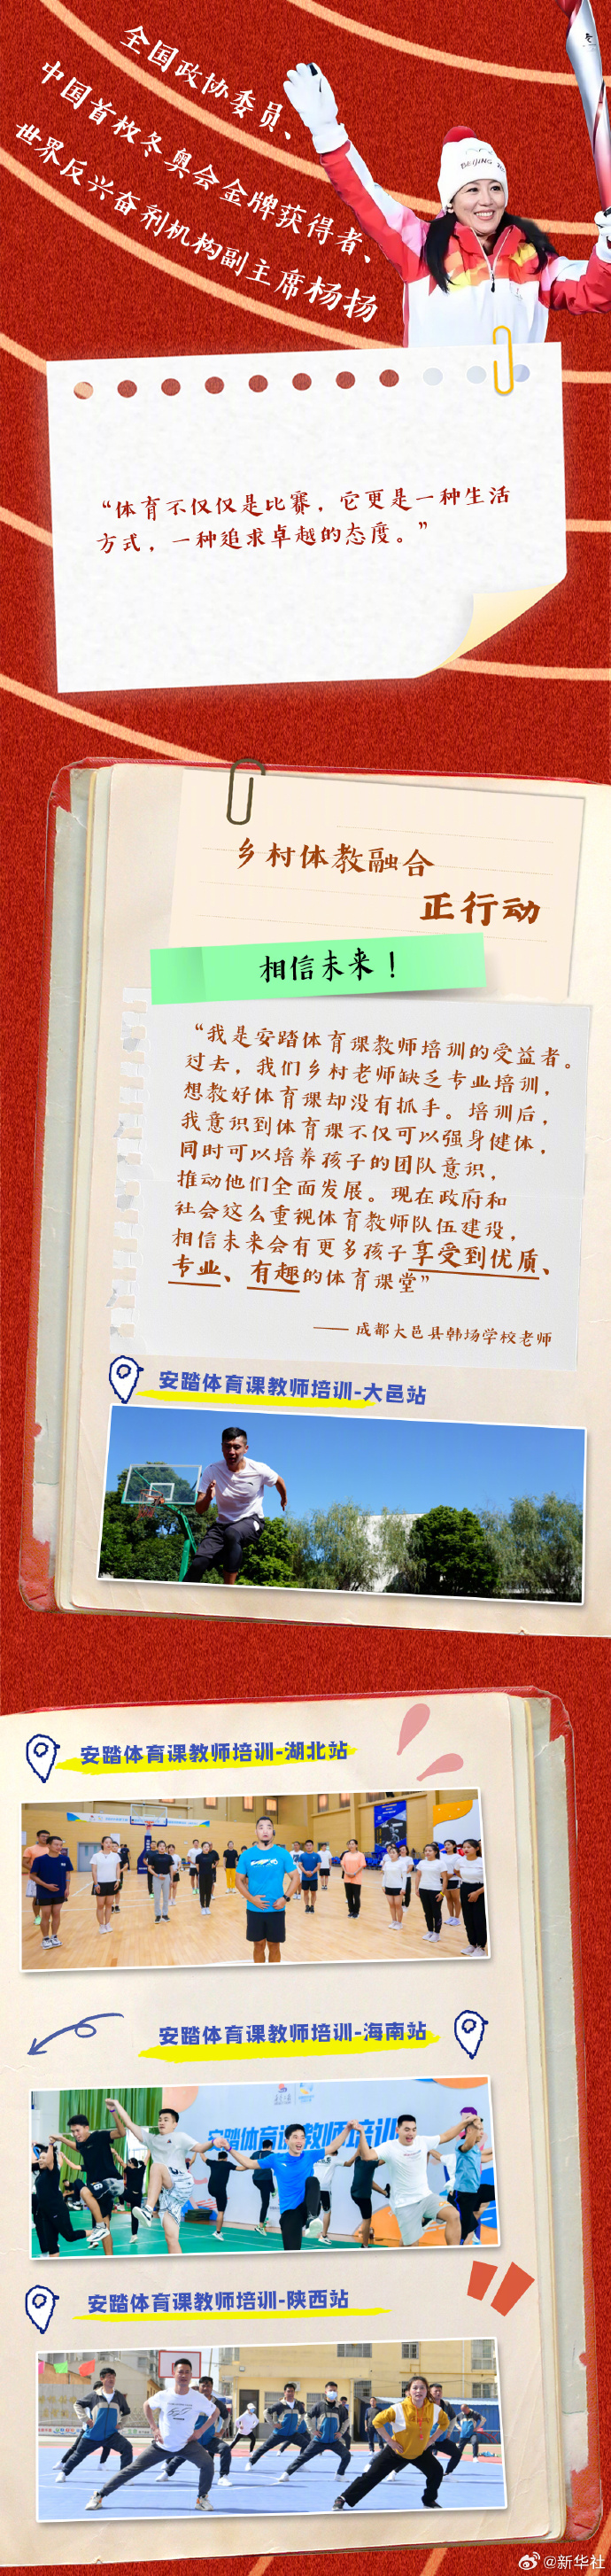 全国政协委员、
中国首枚冬奥会金牌获得者、
世界反兴奋剂机构副主席杨扬
BEIJING
“体育不仅仅是比赛，它更是一种生活
方式，一种追求卓越的态度。”
乡村体教融合
正行动
相信未来！
“我是安踏体育课教师培训的受益者。
过去，我们乡村老师缺乏专业培训，
想教好体育课却没有抓手。培训后，
我意识到体育课不仅可以强身健体，
同时可以培养孩子的团队意识，
推动他们全面发展。现在政府和
社会这么重视体育教师队伍建设，
相信未来会有更多孩子享受到优质、
专业、有趣的体育课堂”
—— 成都大邑县韩场学校老师
安踏体育课教师培训-大邑站
安踏体育课教师培训-湖北站
安踏体育课教师培训-海南站
安踏体育课教师培训
安踏体育课教师培训-陕西站
@新华社